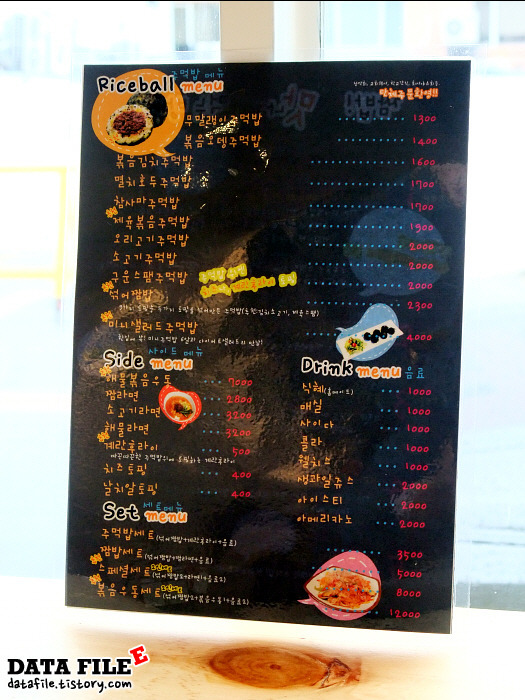 Riceball 주먹밥 메뉴
menu
무말랭이주먹밥 1300
볶음오뎅주먹밥 1400
볶음김치주먹밥 1600
멸치호두주먹밥 1700
참사마주먹밥 1700
제육볶음주먹밥 1900
오리고기주먹밥 2000
소고기주먹밥 2000
구운스팸주먹밥 2000
섞어짬밥 2300
미니샐러드주먹밥 4000
Side 사이드 메뉴
menu
해물볶음우동 7000
짬라면 2800
소고기라면 3200
해물라면 3200
계란후라이 500
치즈토핑 400
날치알토핑 400
Drink menu 음료
식혜(홈메이드) 1000
매실 1000
사이다 1000
콜라 1000
웰치스 1000
생과일쥬스 2000
아이스티 2000
아메리카노 2000
Set 세트메뉴
menu
주먹밥세트 3500
짬밥세트 5000
스페셜세트 8000
볶음우동세트 12000
DATA FILE E
datafile.tistory.com